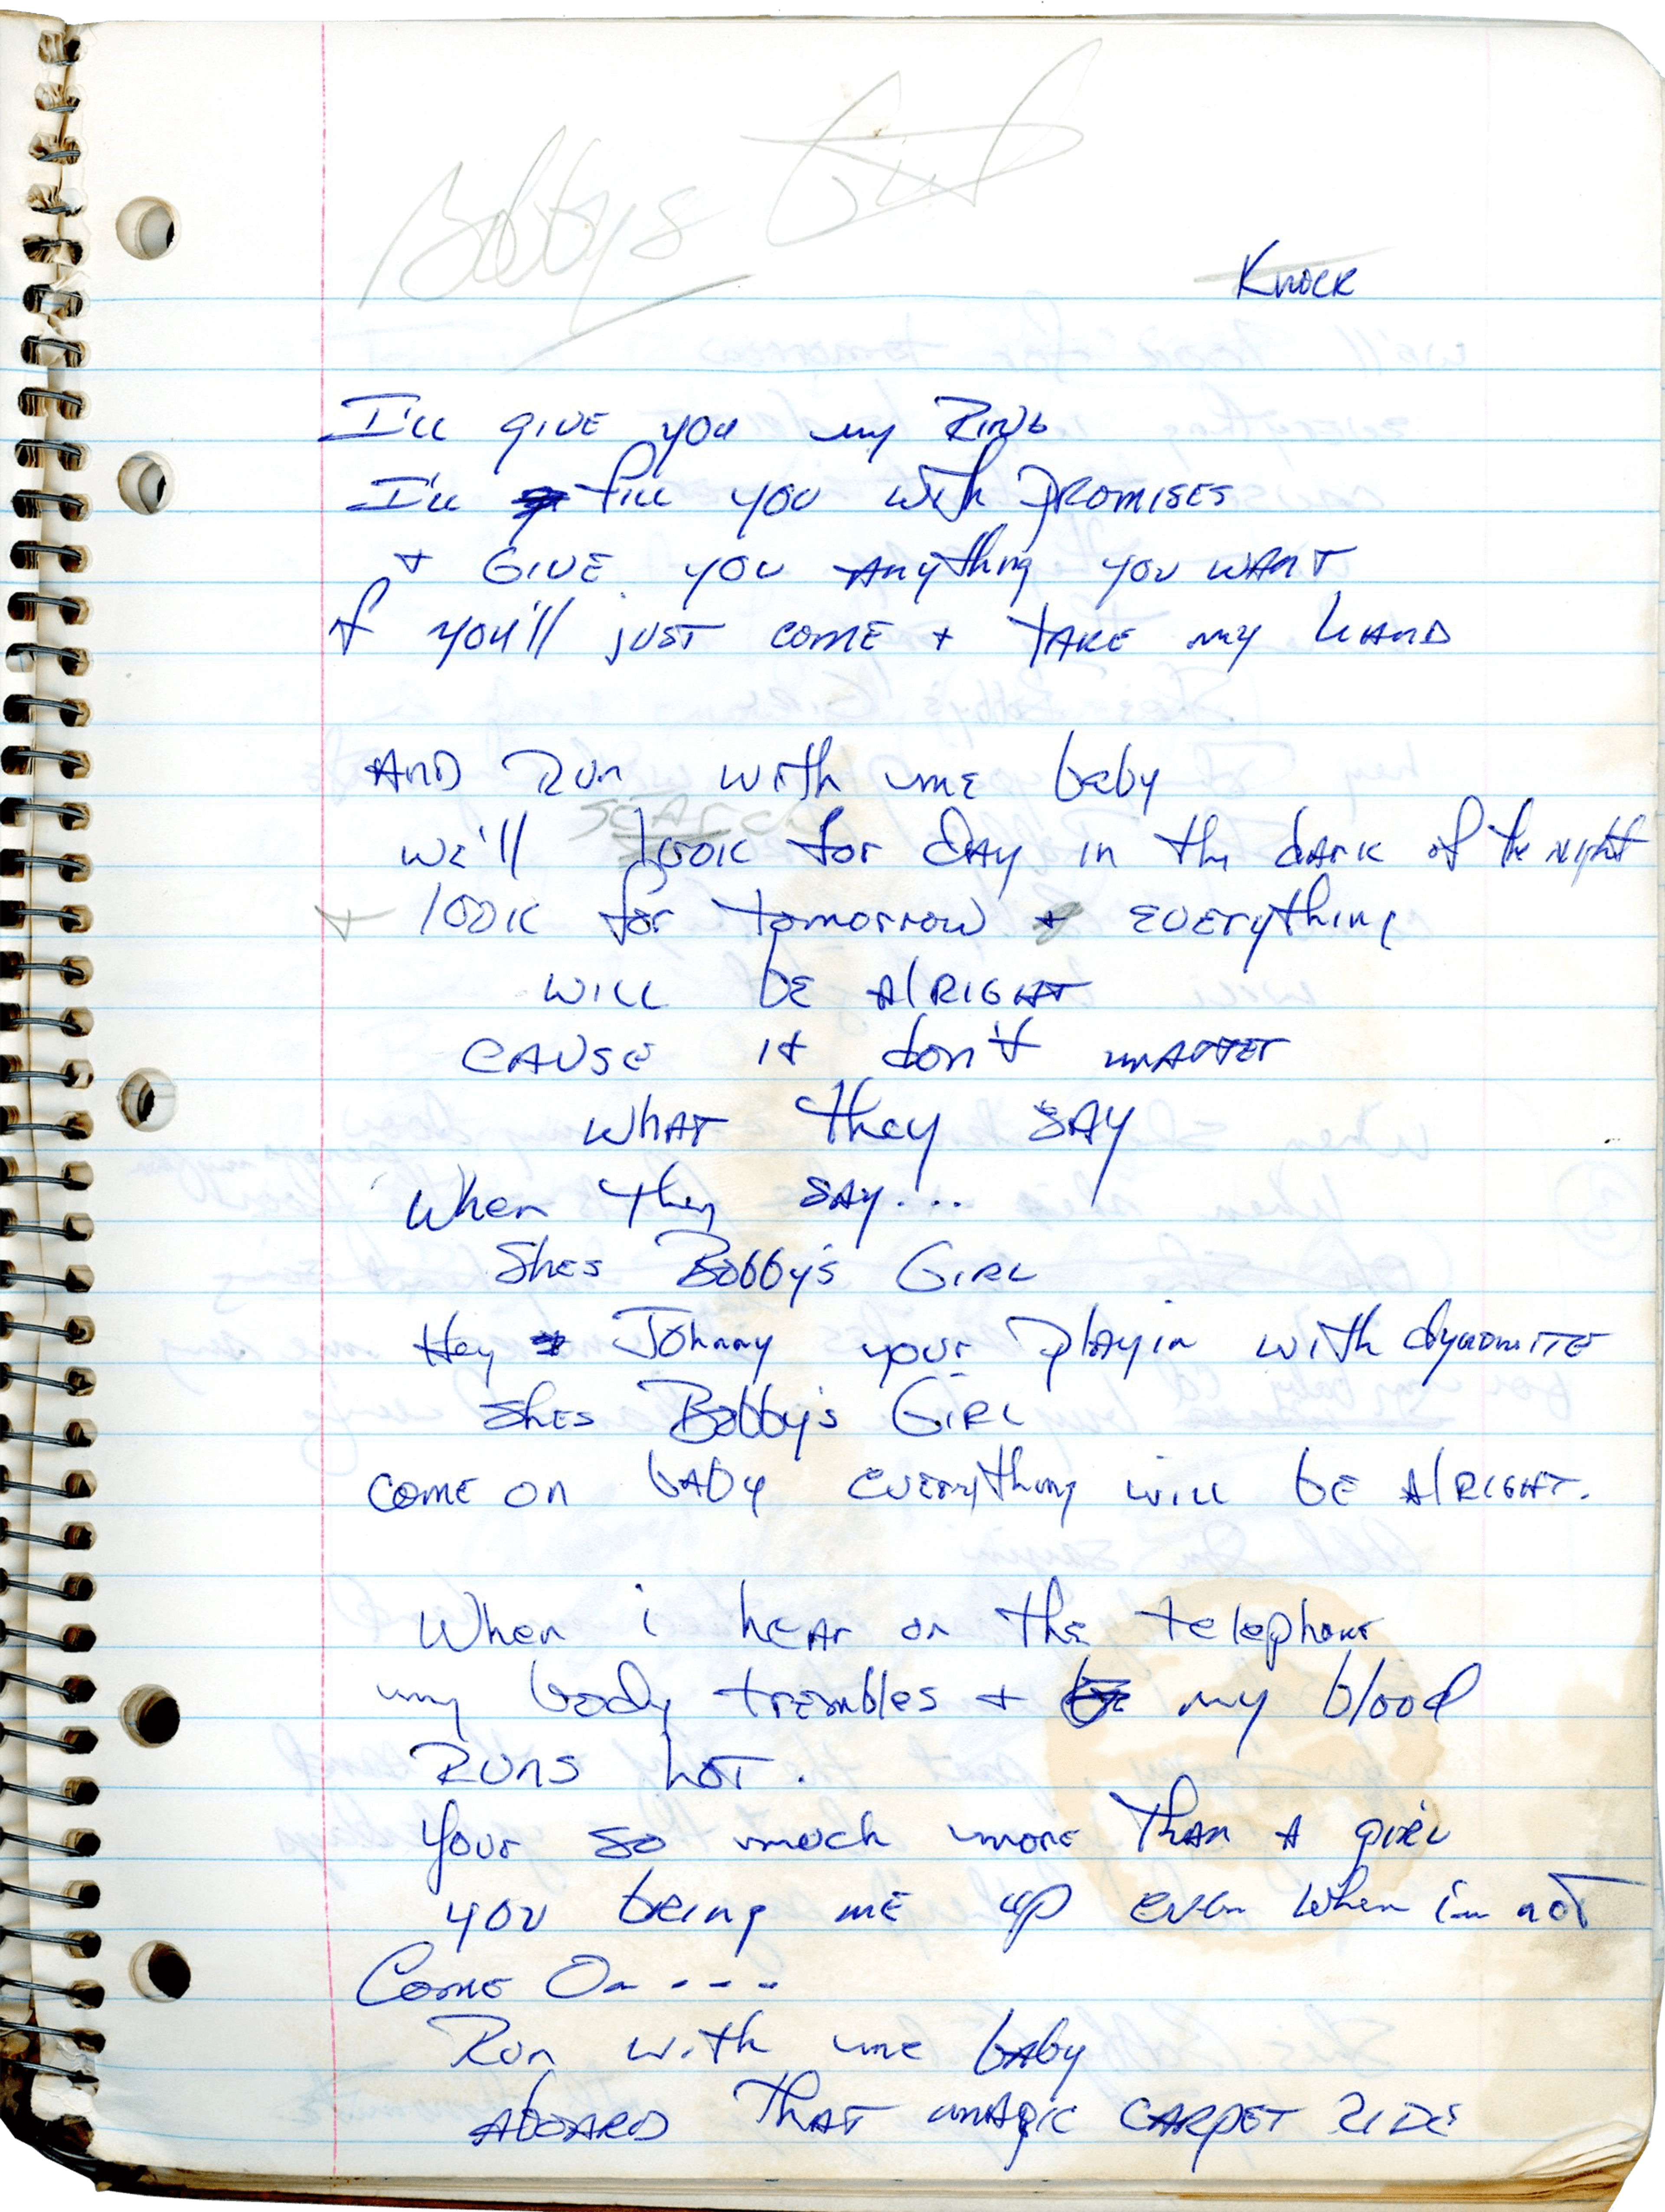 Bobbys Girl
Knock
I'll give you my Ring
I'll fill you with Promises
+ Give you Anything you want
If you'll just come + take my hand
And Run with me baby
search
we'll look for day in the dark of the night
+ look for tomorrow + everything
will be alright
cause it don't matter
what they say
When they say...
Shes Bobby's Girl
Hey Johnny your playin with dynomite
Shes Bobby's Girl
come on baby everything will be alright.
When i hear on the telephone
my body trembles + my blood
Runs hot.
Your so much more than a girl
you being me up even when i'm not
Come On - - - -
Run with me baby
aboard that magic carpet ride